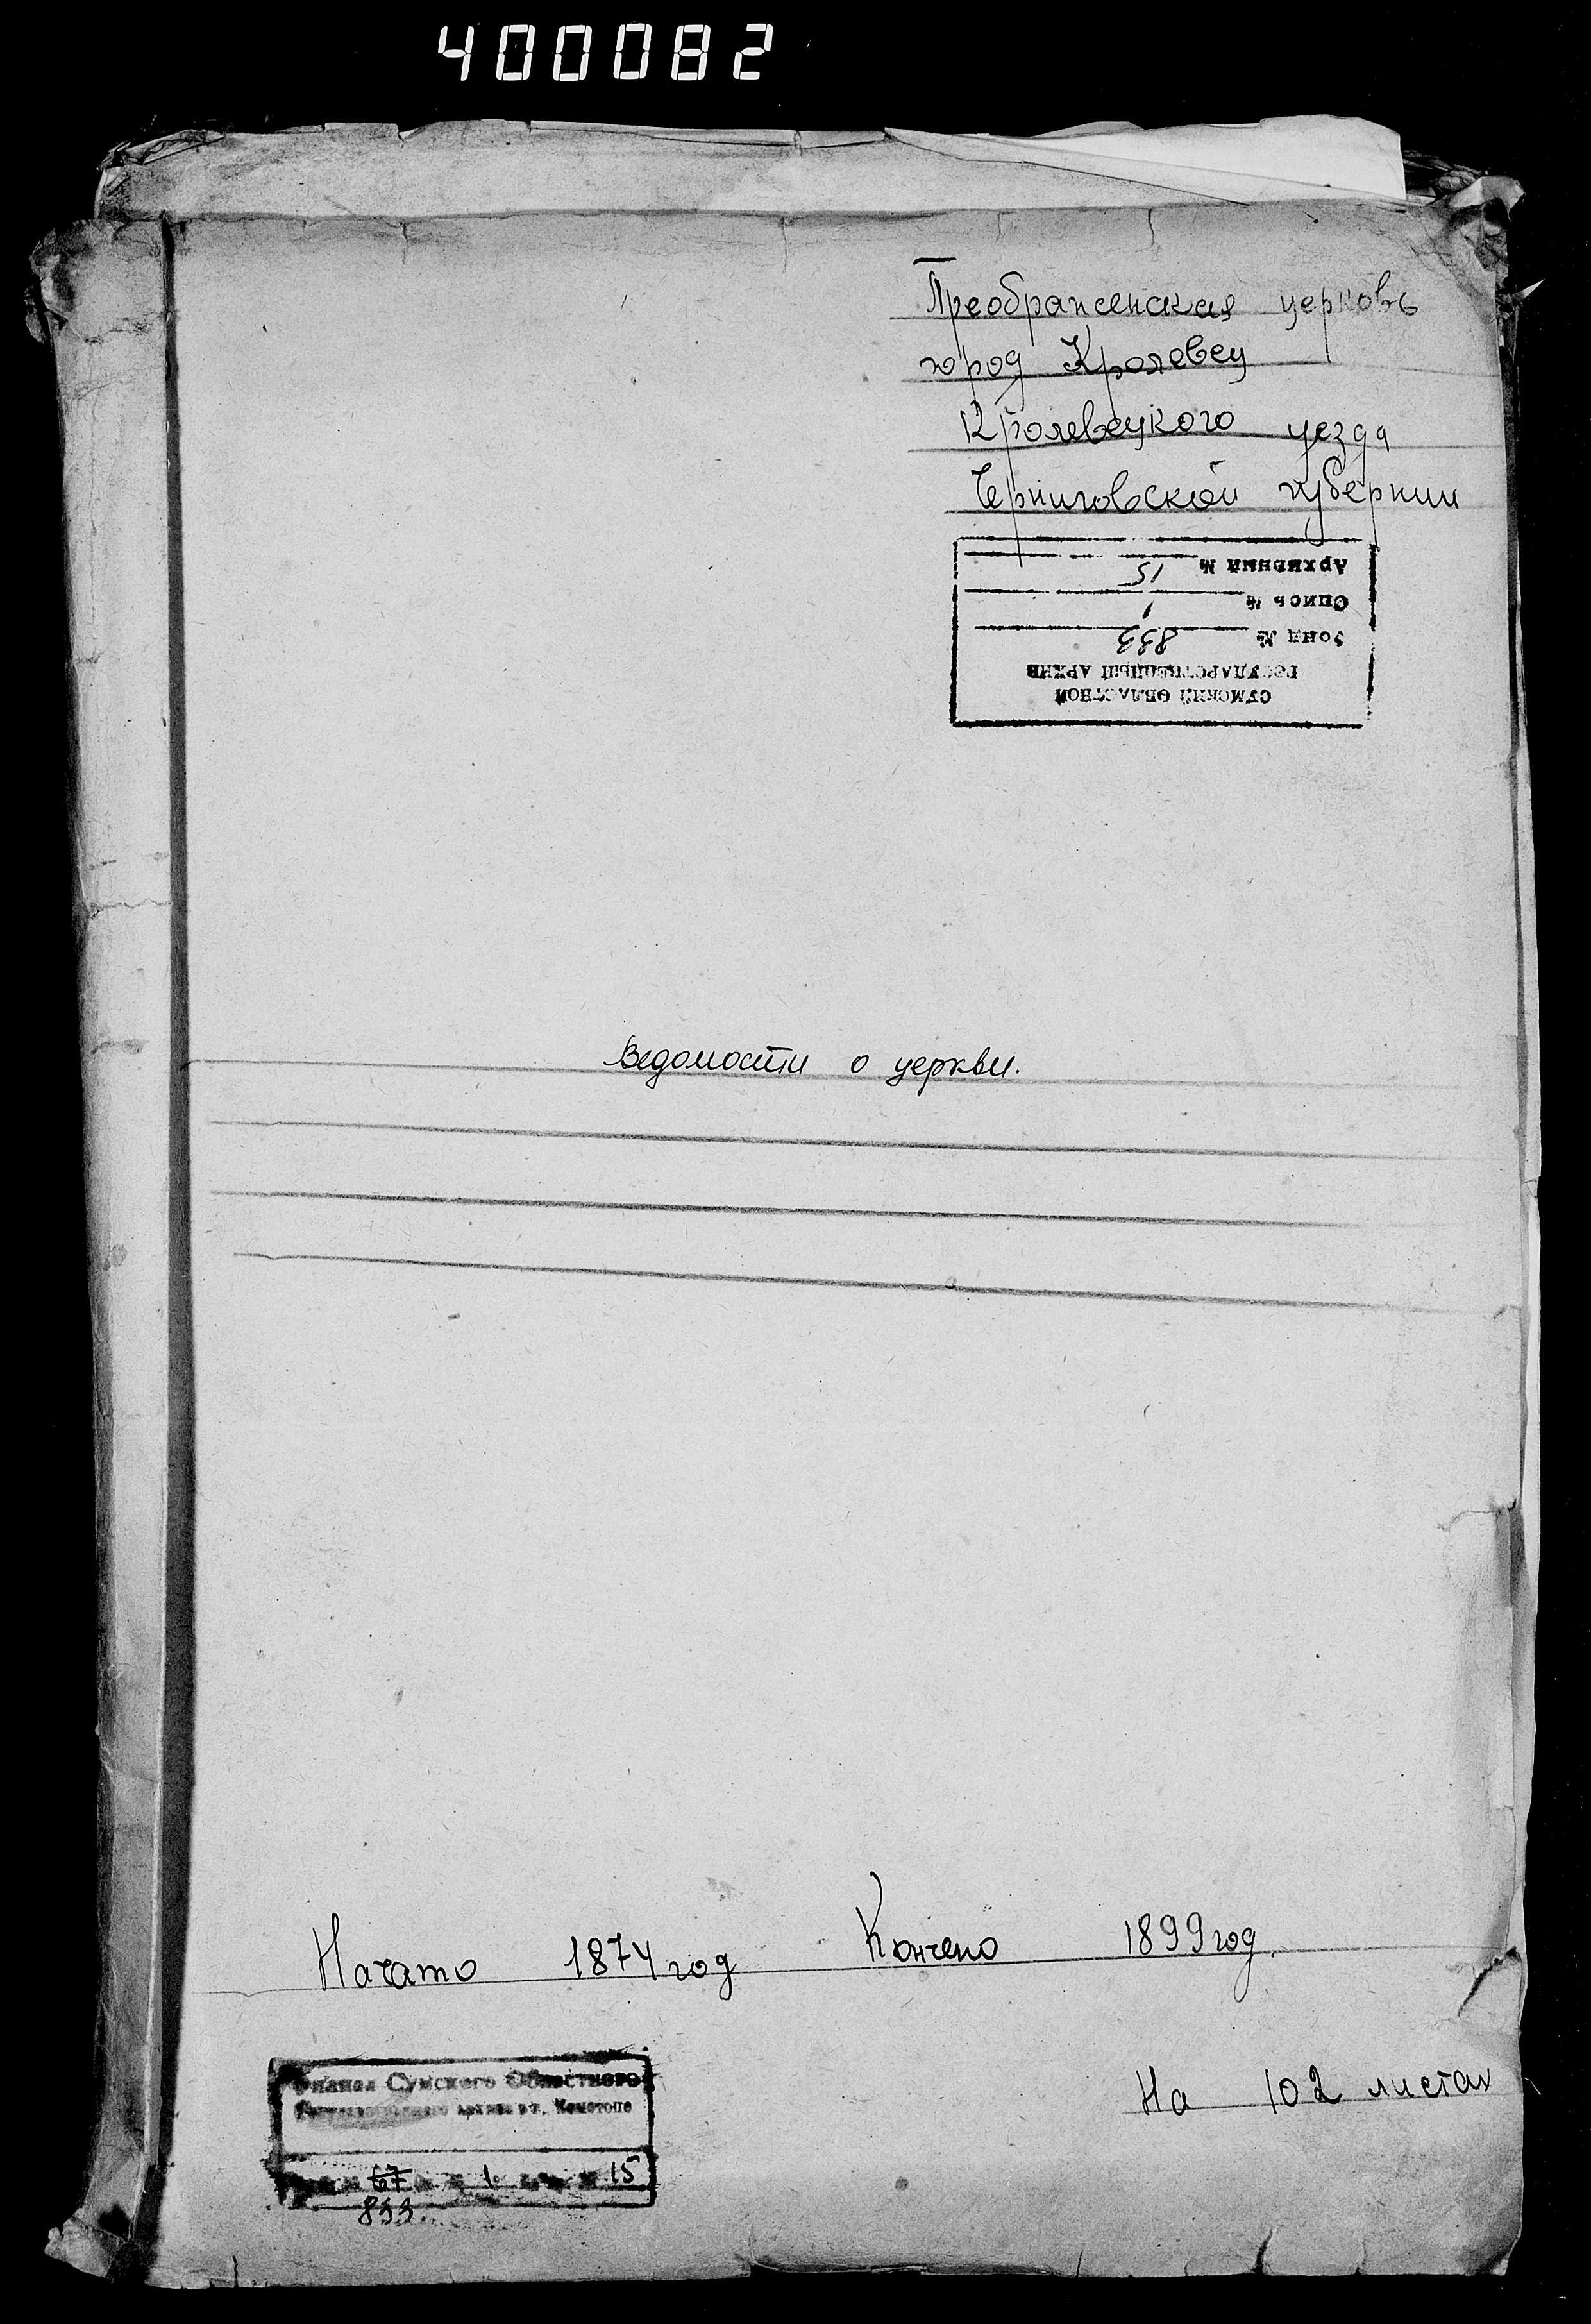 400082
Преображенская церковь
город Кролевец
Кролевецкого уезда
Черниговской губернии
СУМСКИЙ ОБЛАСТНОЙ
ГОСУДАРСТВЕННЫЙ АРХИВ
Фонд № 833
Опись № 1
Архивный № 15
Ведомости о церкви.
Начато 1874 год Кончено 1899 год.
На 102 листах
Филиал Сумского Областного
Государственного архива в г. Конотопе
67 1 15
833